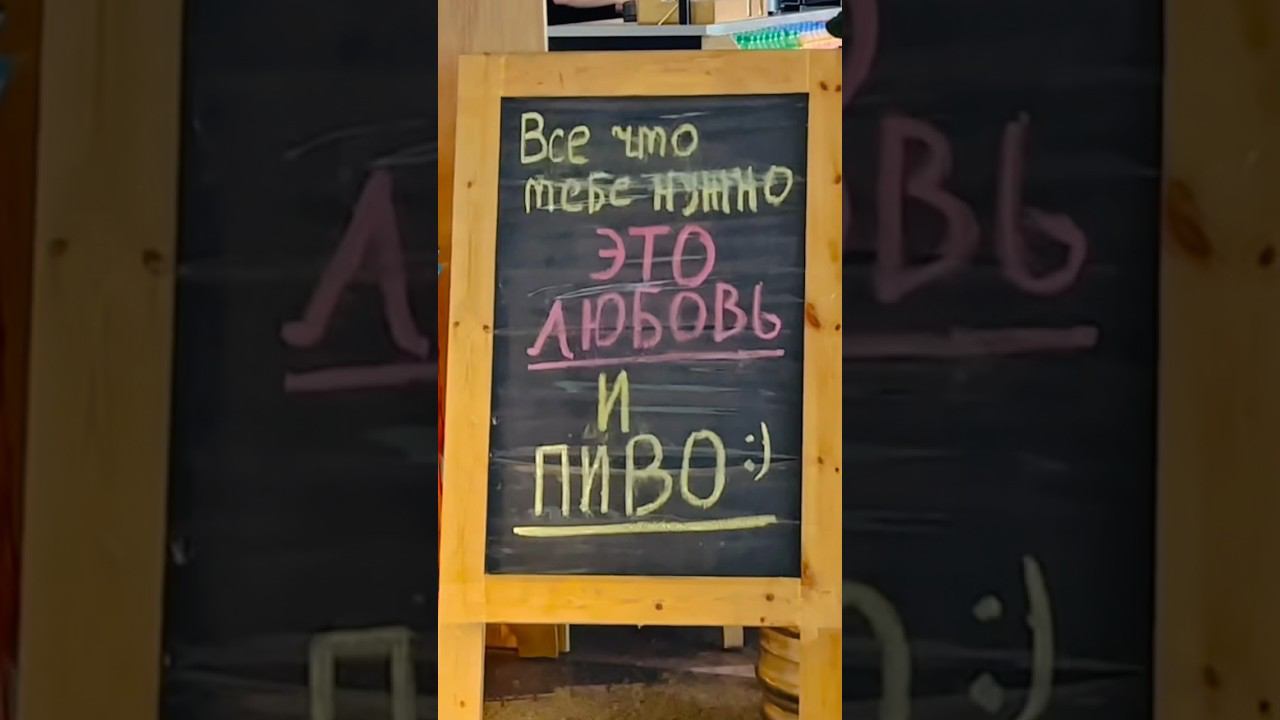 Все что
тебе нужно
ЭТО
ЛЮБОВЬ
И
ПИВО :)